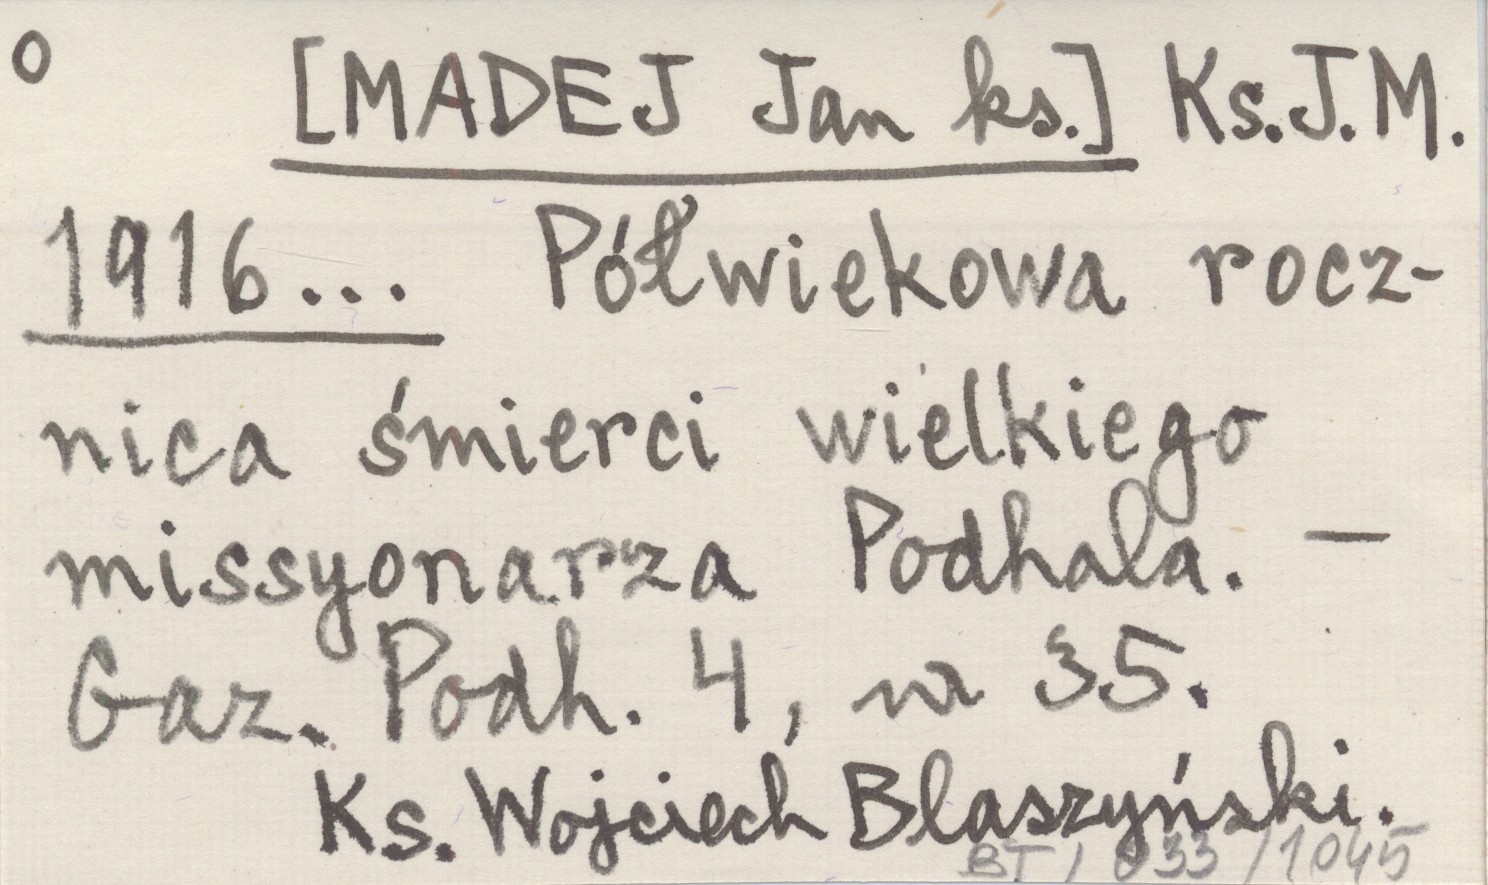 o [MADEJ Jan ks.] Ks. J. M.
1916... Półwiekowa rocz-
nica śmierci wielkiego
missyonarza Podhala. —
Gaz. Podh. 4, nr 35.
Ks. Wojciech Blaszyński.
BT / 033 / 1045